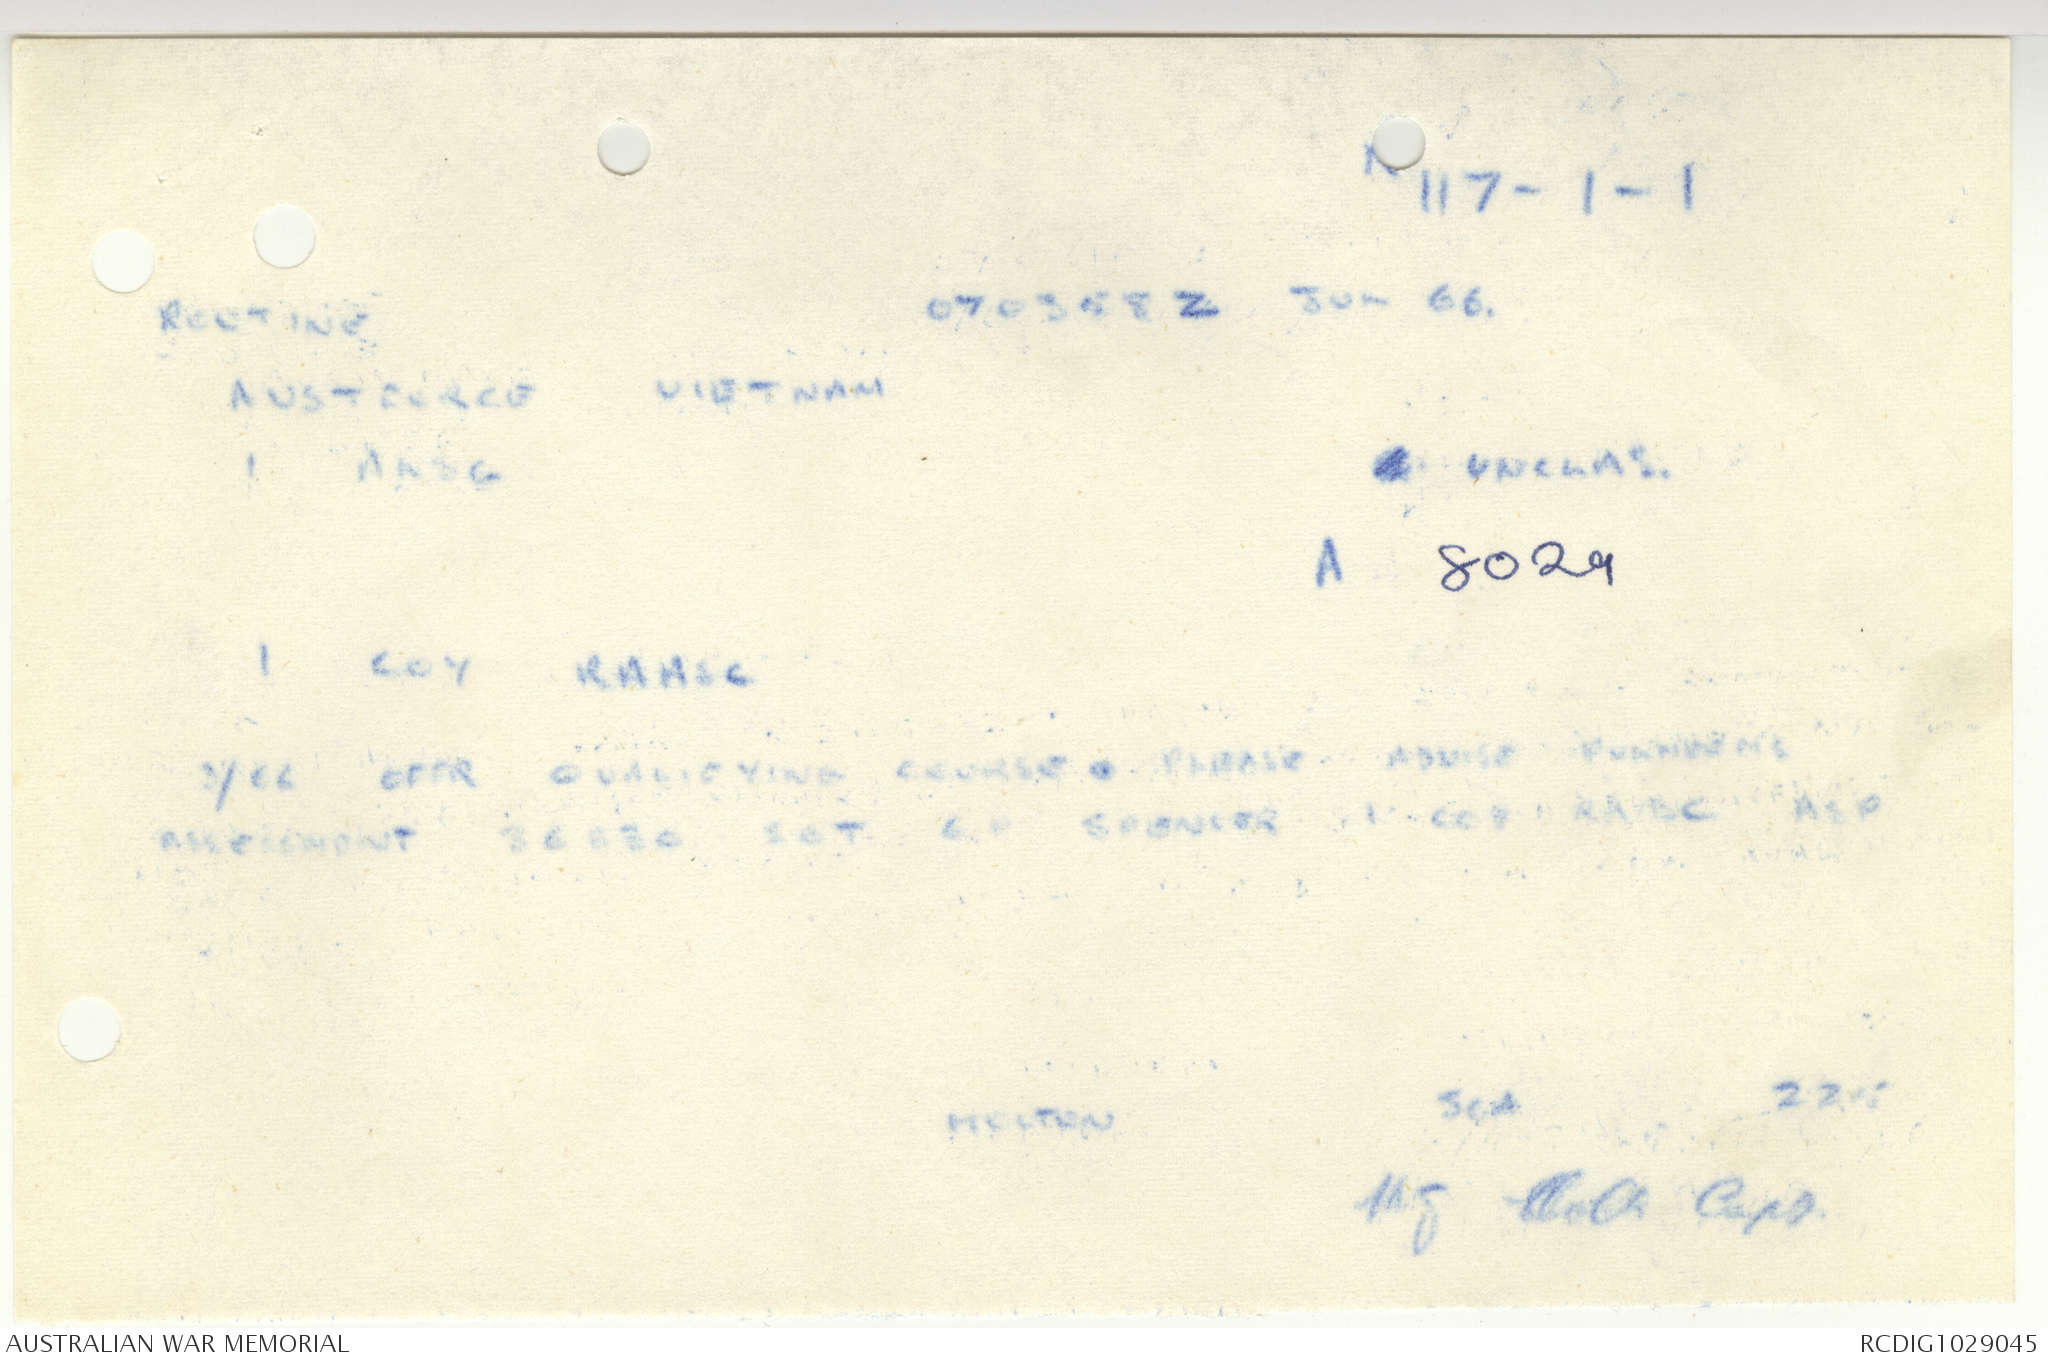 117-1-1
ROUTINE 070358Z JUN 66.
AUSTFORCE VIETNAM
1 ALSG
UNCLAS.
A 8029
1 COY RAASC
3/66 OFFR QUALIFYING COURSE. PLEASE ADVISE
ASSESSMENT SGT SPENCER 1 COY RAASC ASP
MELTON SCA
Capt.
AUSTRALIAN WAR MEMORIAL
RCDIG1029045